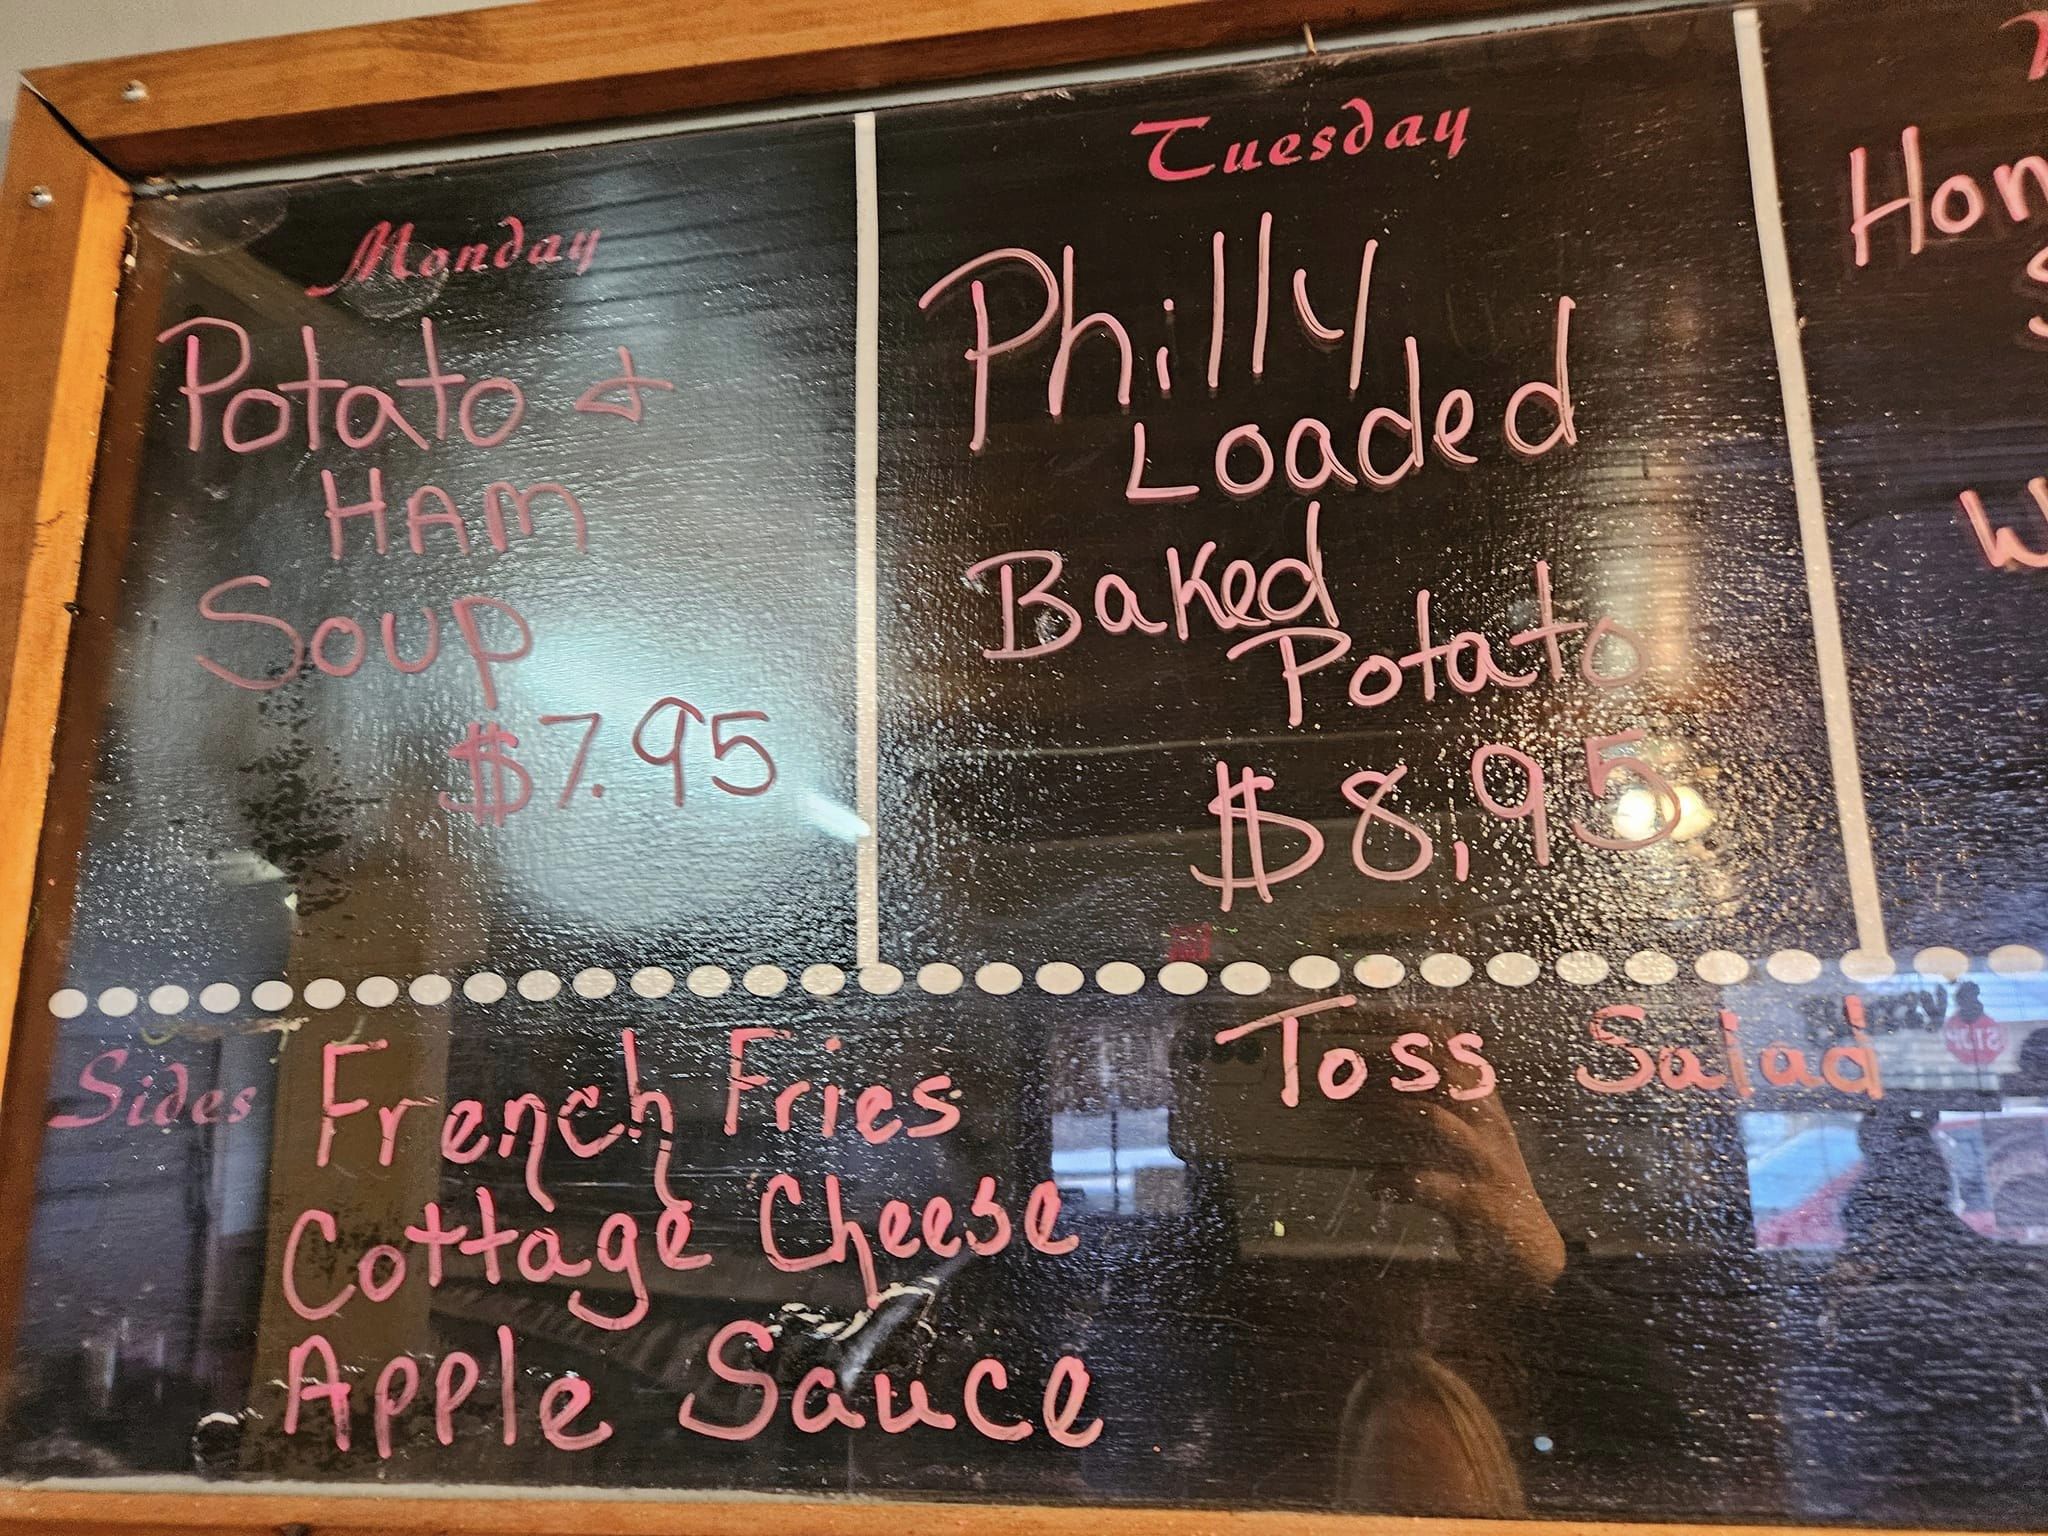 Monday
Potato &
HAM
Soup
$7.95
Tuesday
Philly
Loaded
Baked
Potato
$8,95
Sides
French Fries
Cottage Cheese
Apple Sauce
Toss Salad